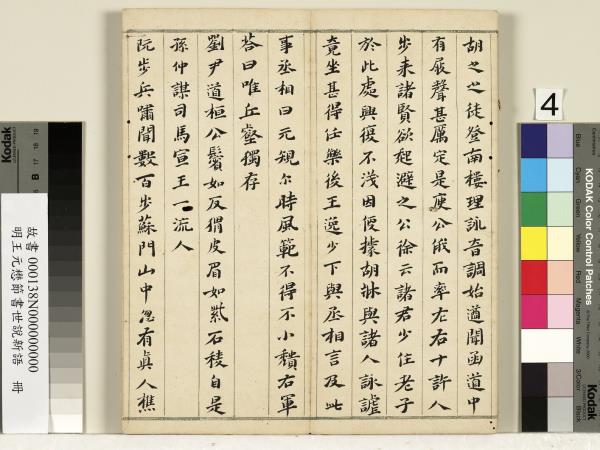 胡之之徒登南樓理詠音調始遒聞函道中
有屐聲甚厲定是庾公俄而率左右十許人
步来諸賢欲起避之公徐云諸君少住老子
於此處興復不淺因便據胡牀與諸人詠謔
竟坐甚得任樂後王逸少下與丞相言及此
事丞相曰元規尓時風範不得不小穨右軍
荅曰唯丘壑獨存
劉尹道桓公鬢如反猬皮眉如紫石稜自是
孫仲謀司馬宣王一流人
阮步兵嘯聞數百步蘇門山中忽有真人樵
故書 000138N000000000
明王元懋節書世說新語 冊
4
Kodak
KODAK Color Control Patches
Blue
Cyan
Green
Yellow
Red
Magenta
White
3/Color
Black
Kodak
B
17
18
19